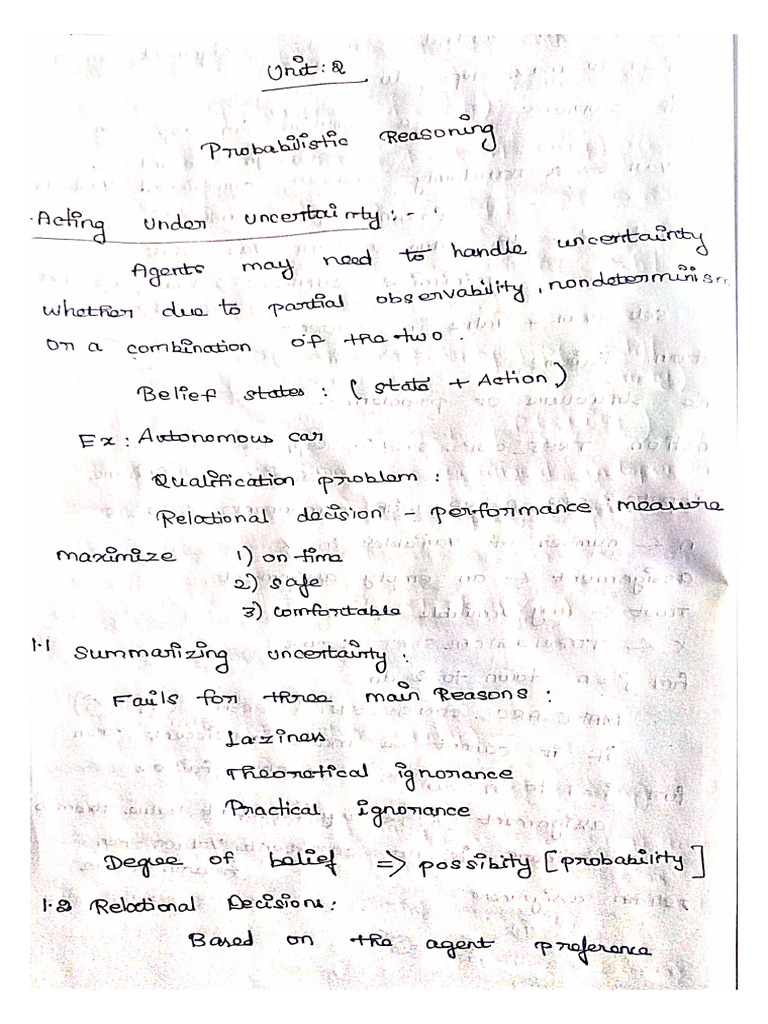 Unit: 2
Probabilistic Reasoning
Acting under uncertainty: -
Agents may need to handle uncertainty
whether due to partial observability, nondeterminism
or a combination of the two.
Belief states: (state + Action)
Ex: Autonomous car
Qualification problem:
Relational decision - performance measure
maximize 1) on time
2) safe
3) comfortable
1.1 Summarizing uncertainty:
Fails for three main Reasons:
Laziness
Theoretical ignorance
Practical ignorance
Degree of belief => possibity [probability]
1.2 Relational Decisions:
Based on the agent preference